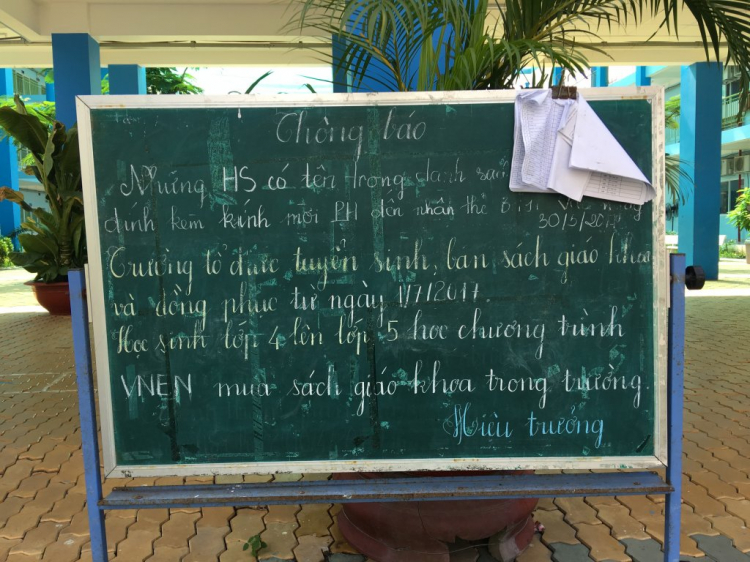 Thông báo
Những HS có tên trong danh sách
đính kèm kính mời PH đến nhận thẻ BHYT vào ngày
30/5/2017
Trường tổ chức tuyển sinh, bán sách giáo khoa
và đồng phục từ ngày 1/7/2017.
Học sinh lớp 4 lên lớp 5 học chương trình
VNEN mua sách giáo khoa trong trường.
Hiệu trưởng